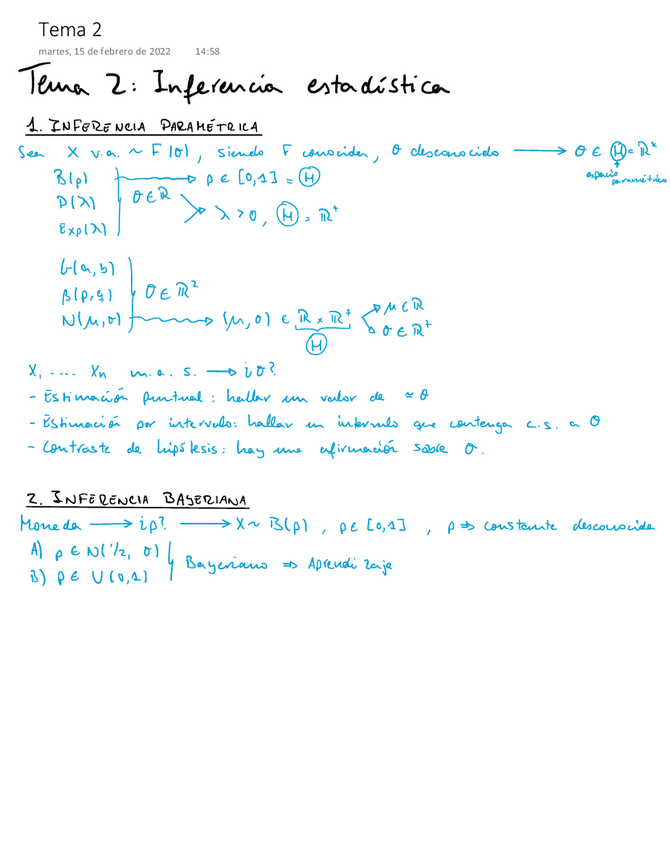 Tema 2
martes, 15 de febrero de 2022 14:58
Tema 2: Inferencia estadística
1. INFERENCIA PARAMÉTRICA
Sea X v.a. ~ F(θ), siendo F conocida, θ desconocido → θ ∈ Θ = ℝᵏ
espacio paramétrico
B(p) → p ∈ [0,1] = Θ
P(λ) θ ∈ ℝ → λ > 0, Θ = ℝ⁺
Exp(λ)
G(a, b)
β(p, q) θ ∈ ℝ²
N(μ, σ) → (μ, σ) ∈ ℝ × ℝ⁺ → μ ∈ ℝ
σ ∈ ℝ⁺
Θ
X₁ .... Xn m.a.s. → ¿θ?
- Estimación puntual: hallar un valor de ≃ θ
- Estimación por intervalo: hallar un intervalo que contenga c.s. a θ
- Contraste de hipótesis: hay una afirmación sobre θ.
2. INFERENCIA BAYERIANA
Moneda → ¿p? → X ~ B(p), p ∈ [0,1], p ⇒ constante desconocida
A) p ∈ N(1/2, σ)
B) p ∈ U(0,1) Bayeriano ⇒ Aprendizaje